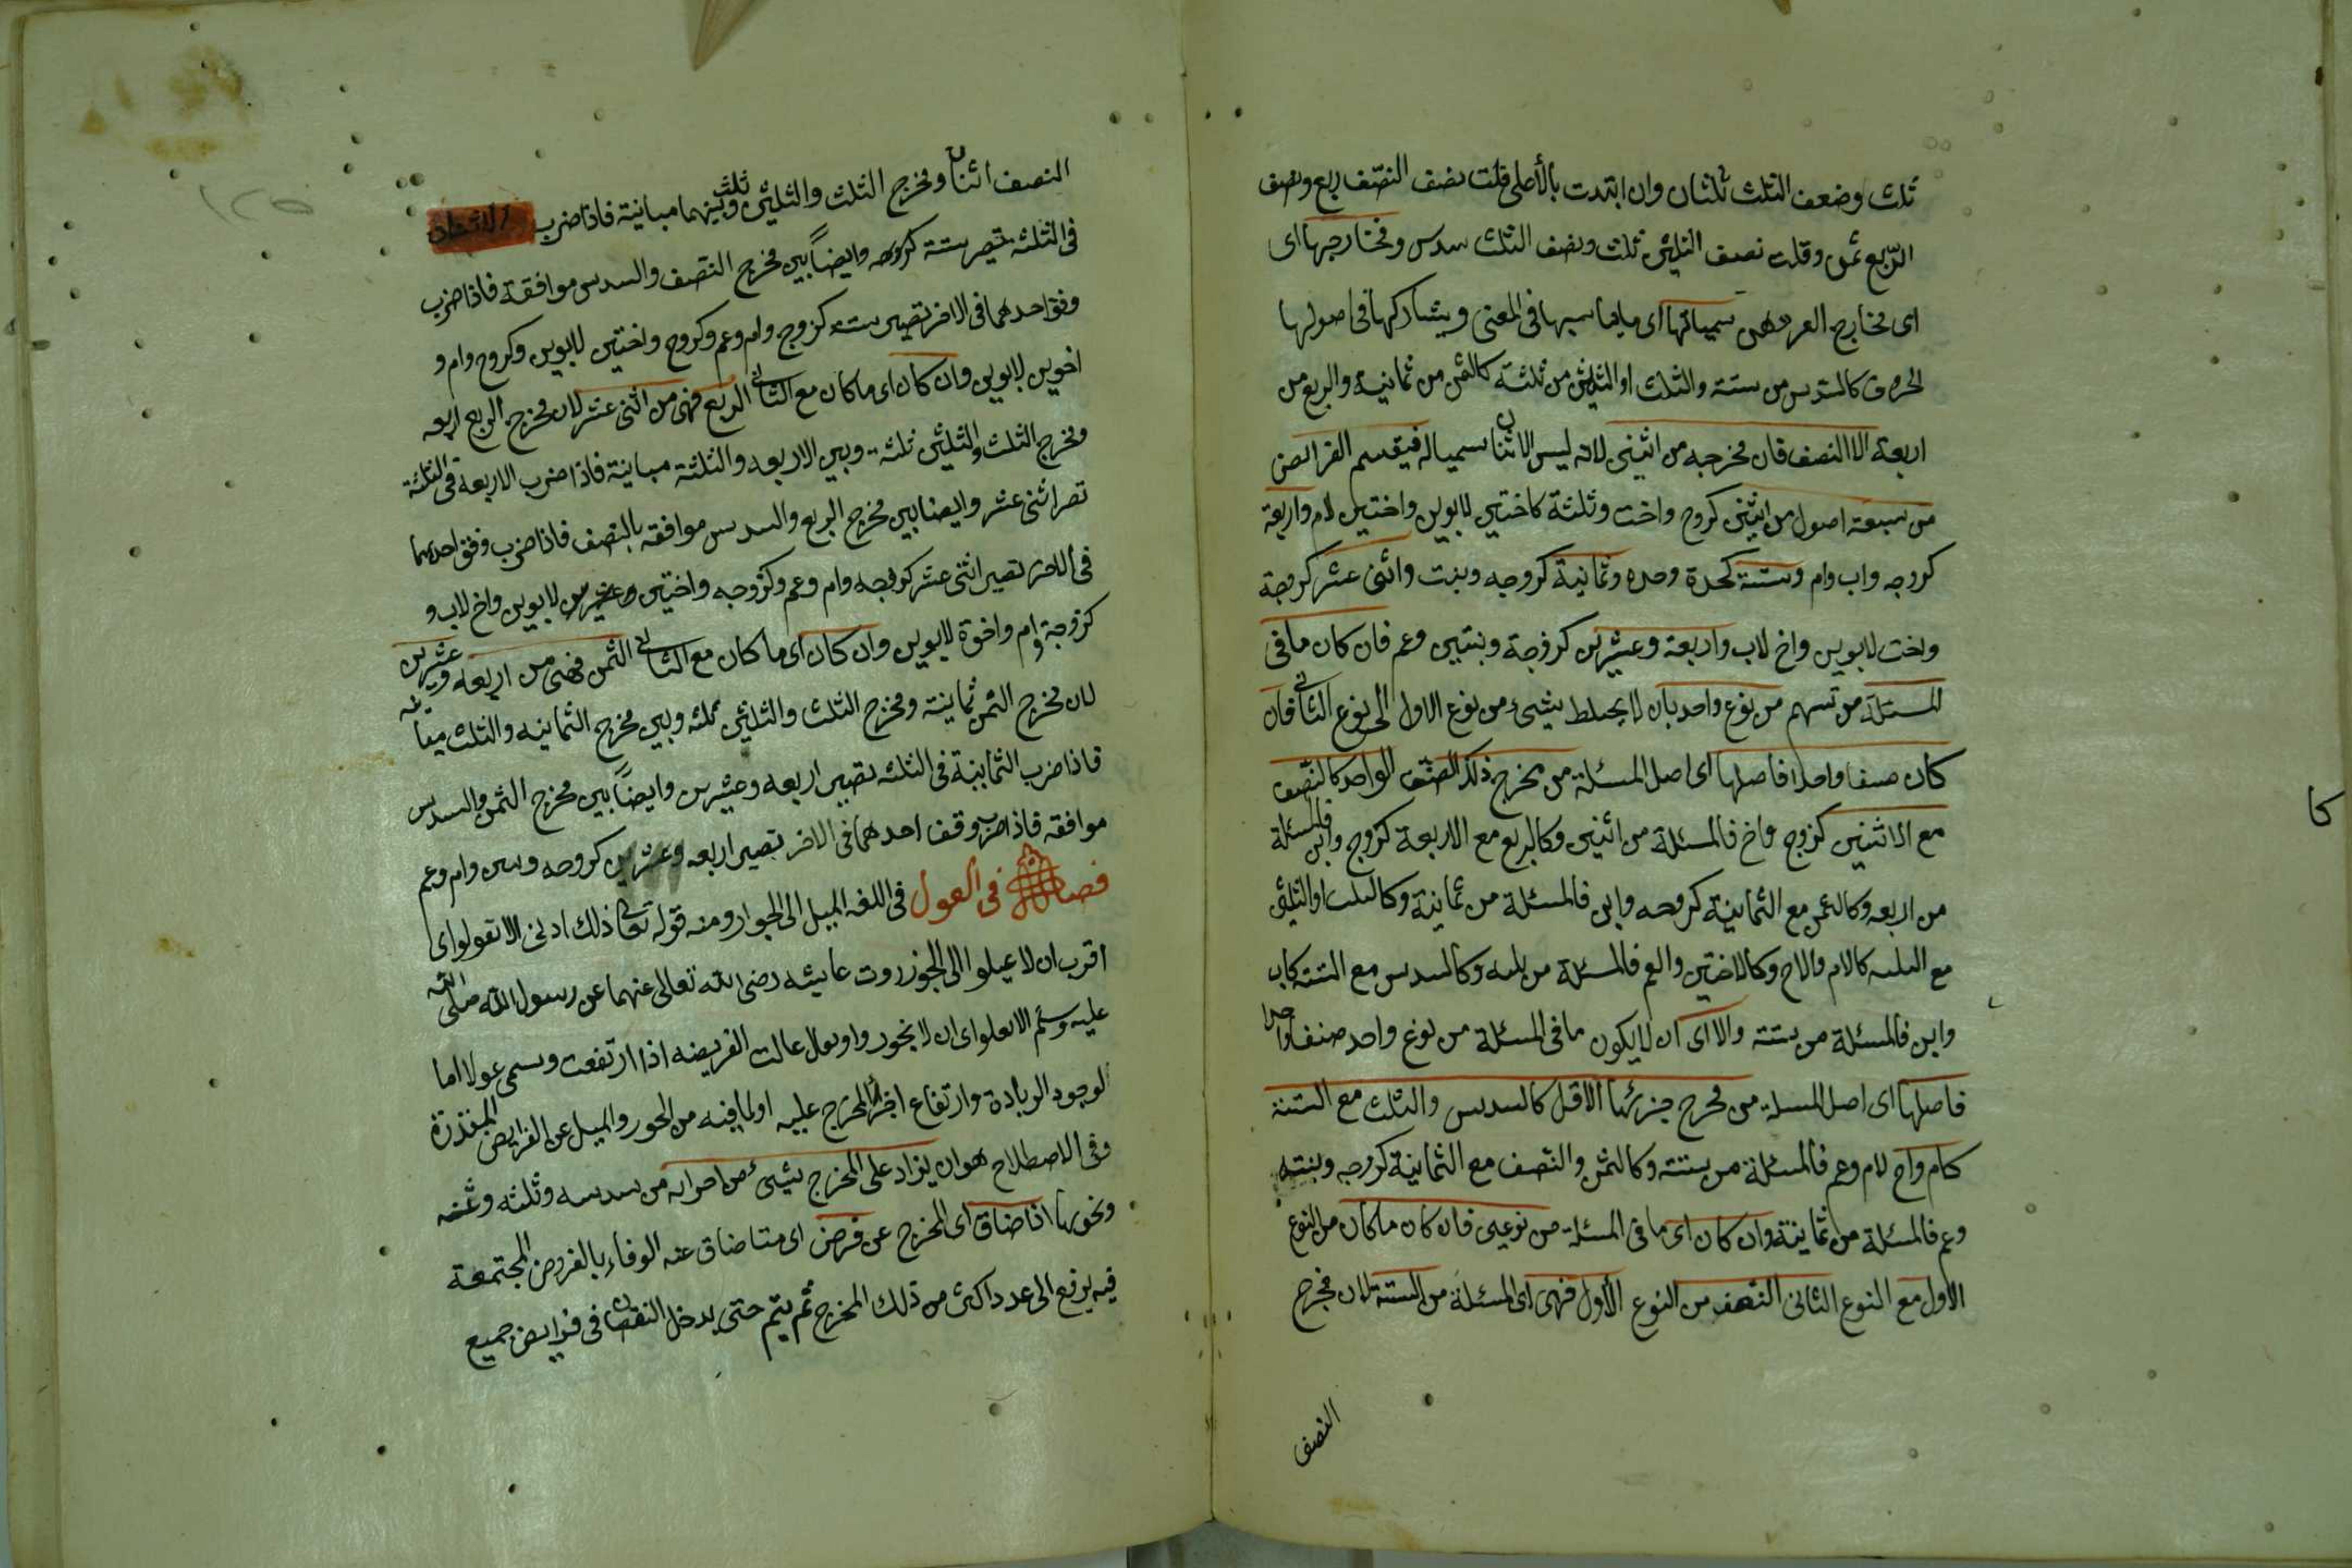 ثلث وضعف الثلث ثلثان وان ابتدت بالأعلى قلت نصف النصف ربع ونصف
الربع ثمن وقلت نصف الثلثين ثلث ونصف الثلث سدس ومخارجها اى
اى مخارج سمياتها اى ما يناسبها فى المعنى ويشاركها فى اصولها
الحروف كالسدس من ستة والثلث او الثلثين من ثلثة كالثمن من ثمانية والربع من
اربعة الا النصف فان مخرجه من اثنين لانه ليس الاثنان سميا له فيقسم الفرائض
من سبعة اصول من اثنين كزوج واخت وثلثة كاختين لابوين واختين لام واربعة
كزوجه واب وام وستة كجدة وجده وثمانية كزوجه وبنت واثنى عشر كزوجة
واخت لابوين واخ لاب واربعة وعشرين كزوجة وبنتين وعم فان كان ما فى
المسئلة من سهم من نوع واحد بان لا يختلط شيء من نوع الاول الى نوع الثانى فان
كان صنفا واحدا فاصلها اى اصل المسئلة من مخرج ذلك الصنف الواحد كالنصف
مع الاثنين كزوج واخ فالمسئلة من اثنين وكالربع مع الاربعة كزوج وابن فالمسئلة
من اربعه وكالثمن مع الثمانية كزوجه وابن فالمسئلة من ثمانية وكالثلث او الثلثين
مع الثلثه كالام والاخ وكالاختين والعم فالمسئلة من ثلثه وكالسدس مع الستة كاب
وابن فالمسئلة من ستة والا اى ان لا يكون ما فى المسئلة من نوع واحد صنفا واحدا
فاصلها اى اصل المسئلة من مخرج جزئها الاقل كالسدس والثلث مع الستة
كام واخ لام وعم فالمسئلة من ستة وكالثمن والنصف مع الثمانية كزوجه وبنته
وعم فالمسئلة من ثمانية وان كان اى ما فى المسئلة من نوعين فان كان ما كان من النوع
الاول مع النوع الثانى النصف من النوع الأول فهى اى المسئلة من الستة لان مخرج
النصف
النصف اثنان ومخرج الثلث والثلثين ثلث وبينهما مباينة فاذا ضرب الاثنان
فى الثلثه تصير ستة وايضاً بين مخرج النصف والسدس موافقة فاذا ضرب
وفق احدهما فى الاخر تصير ستة كزوج وام وعم وكزوج واختين لابوين وكزوج وام و
اخوين لابوين وان كان اى ما كان مع الثانى الربع فهى من اثنى عشر لان مخرج الربع اربعه
ومخرج الثلث والثلثين ثلثة وبين الاربعه والثلثة مباينة فاذا ضرب الاربعة فى الثلثة
تصر اثنى عشر وايضا بين مخرج الربع والسدس موافقه بالنصف فاذا ضرب وفق احدهما
فى الاخر تصير اثنى عشر كزوجه وام وعم وكزوجه واختين لابوين واخ لاب و
كزوجة وام واخوة لابوين وان كان اى ما كان مع الثانى الثمن فهى من اربعه وعشرين
لان مخرج الثمن ثمانية ومخرج الثلث والثلثين ثلثه وبين مخرج الثمانيه والثلث مباينه
فاذا ضرب الثمانية فى الثلثه تصير اربعه وعشرين وايضاً بين مخرج الثمن والسدس
موافقه فاذا ضرب وفق احدهما فى الاخر تصير اربعه وعشرين كزوجه وام وعم
فصل فى العول فى اللغه الميل الى الجوار ومنه قوله تعالى ذلك ادنى الا تعولوا اى
اقرب ان لا تميلوا الى الجوز روت عايشه رضى الله تعالى عنهما عن رسول الله صلى الله
عليه وسلم الا تعلوا اى ان لا تجوروا عالت الفريضه اذا ارتفعت وسمى عولا اما
لوجود الزيادة وارتفاع اجزاء المخرج عليه او لما فيه من الجور والميل عن الفرايض المقدرة
وفى الاصطلاح هو ان يزاد على المخرج شيىء من اجزايه من سدسه وثلثه وثمنه
ونحوها اذا ضاق اى المخرج عن فرض اى متا ضاق عنه الوفاء بالفروض المجتمعة
فيه يرفع الى عدد اكثر من ذلك المخرج ثم يتم حتى يدخل النقصان فى فرايض جميع